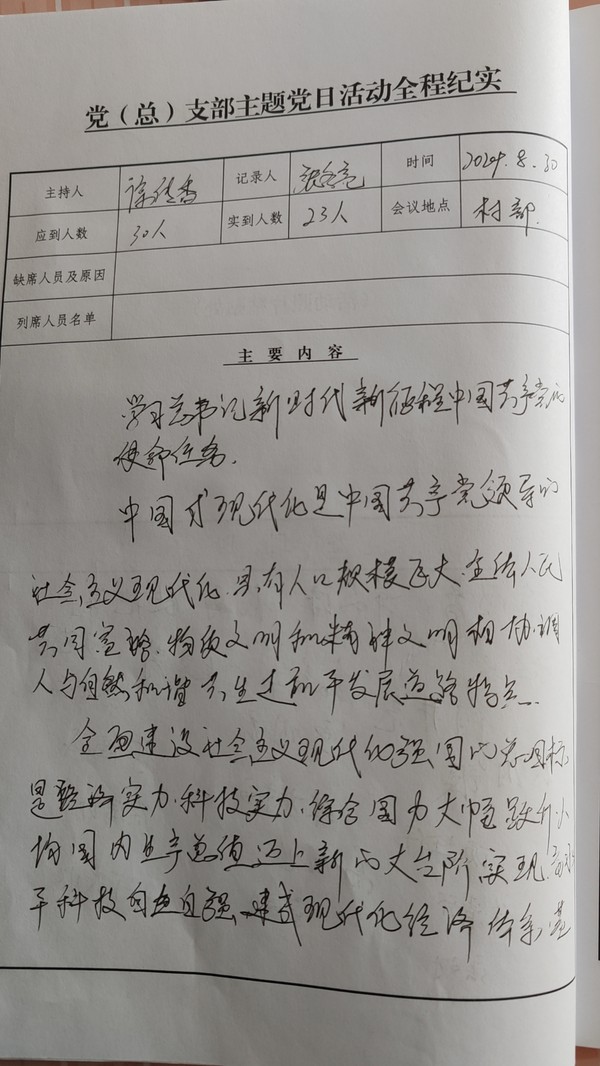 党（总）支部主题党日活动全程纪实
主持人 徐传香 记录人 时间 2024.8.30
应到人数 30人 实到人数 23人 会议地点 村部.
缺席人员及原因
列席人员名单
主要内容
学习总书记新时代新征程中国共产党的
使命任务.
中国式现代化是中国共产党领导的
社会主义现代化.具有人口规模巨大.全体人民
共同富裕.物质文明和精神文明相协调
人与自然和谐共生走和平发展道路特点..
全面建设社会主义现代化强国的总目标
是经济实力.科技实力.综合国力大幅跃升.人
均国内生产总值迈上新的大台阶实现高水
平科技自立自强.建成现代化经济体系.基